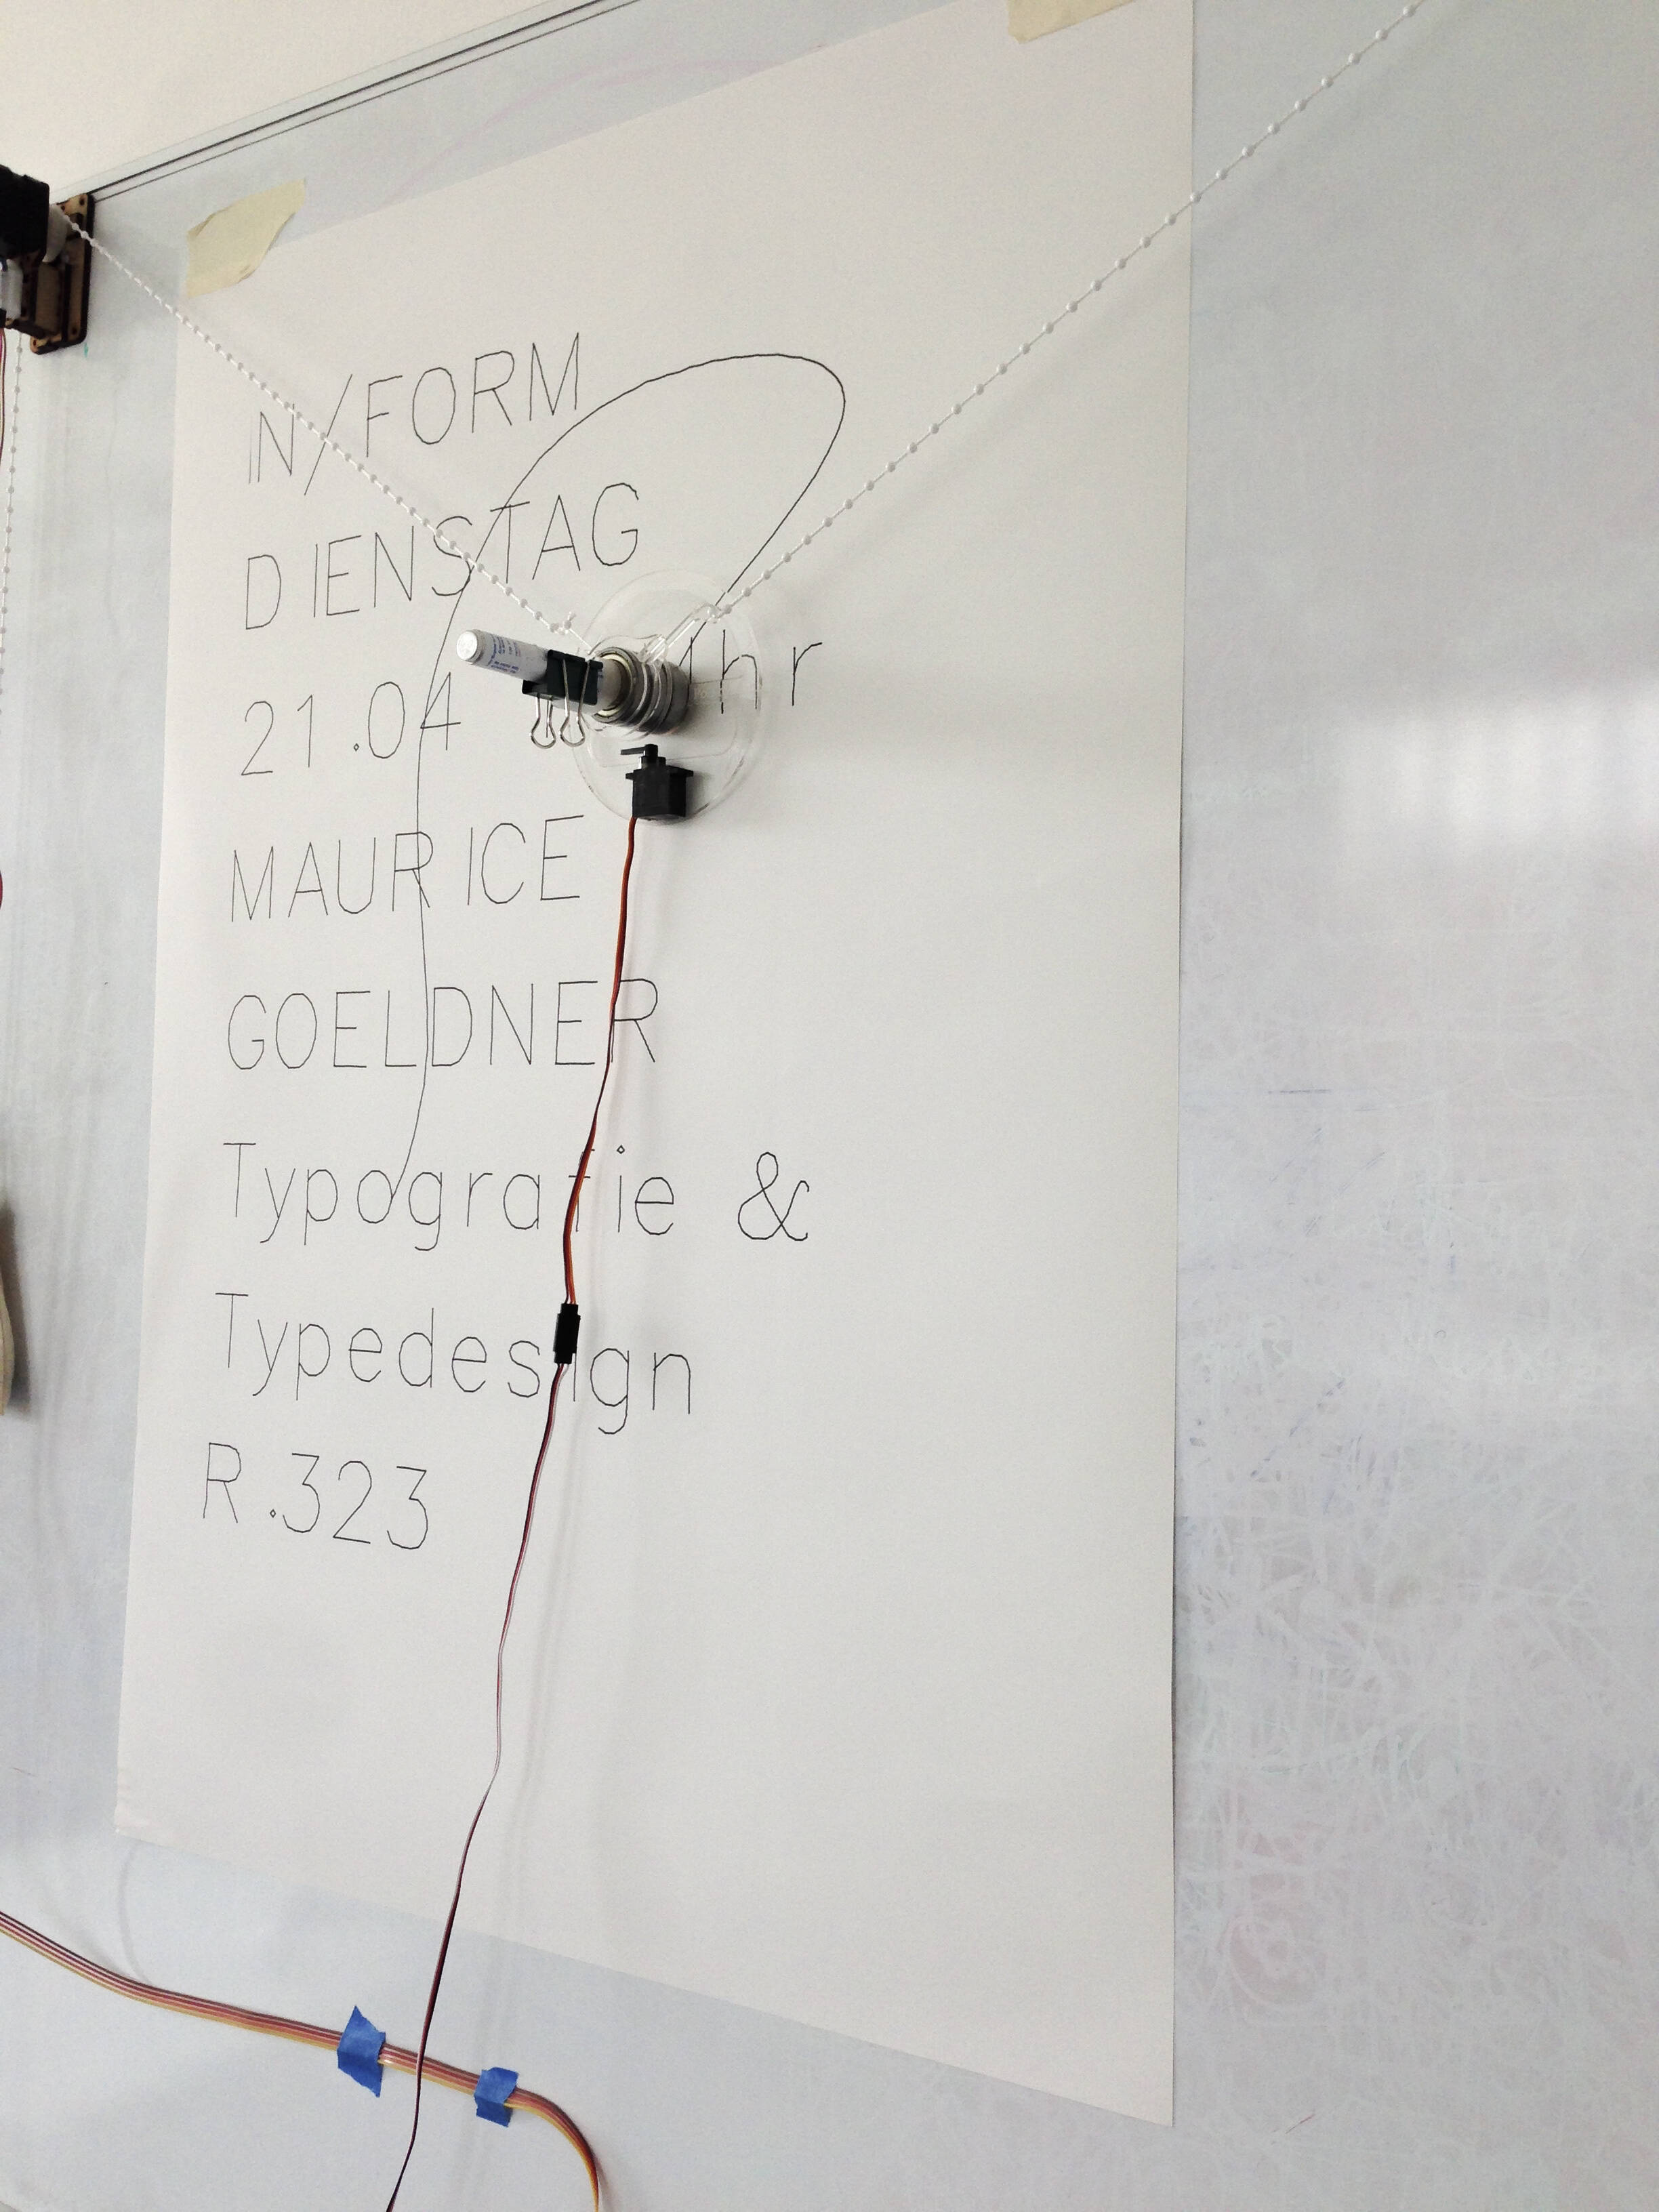 IN/FORM
DIENSTAG
21.04 Uhr
MAURICE
GOELDNER
Typografie &
Typedesign
R.323